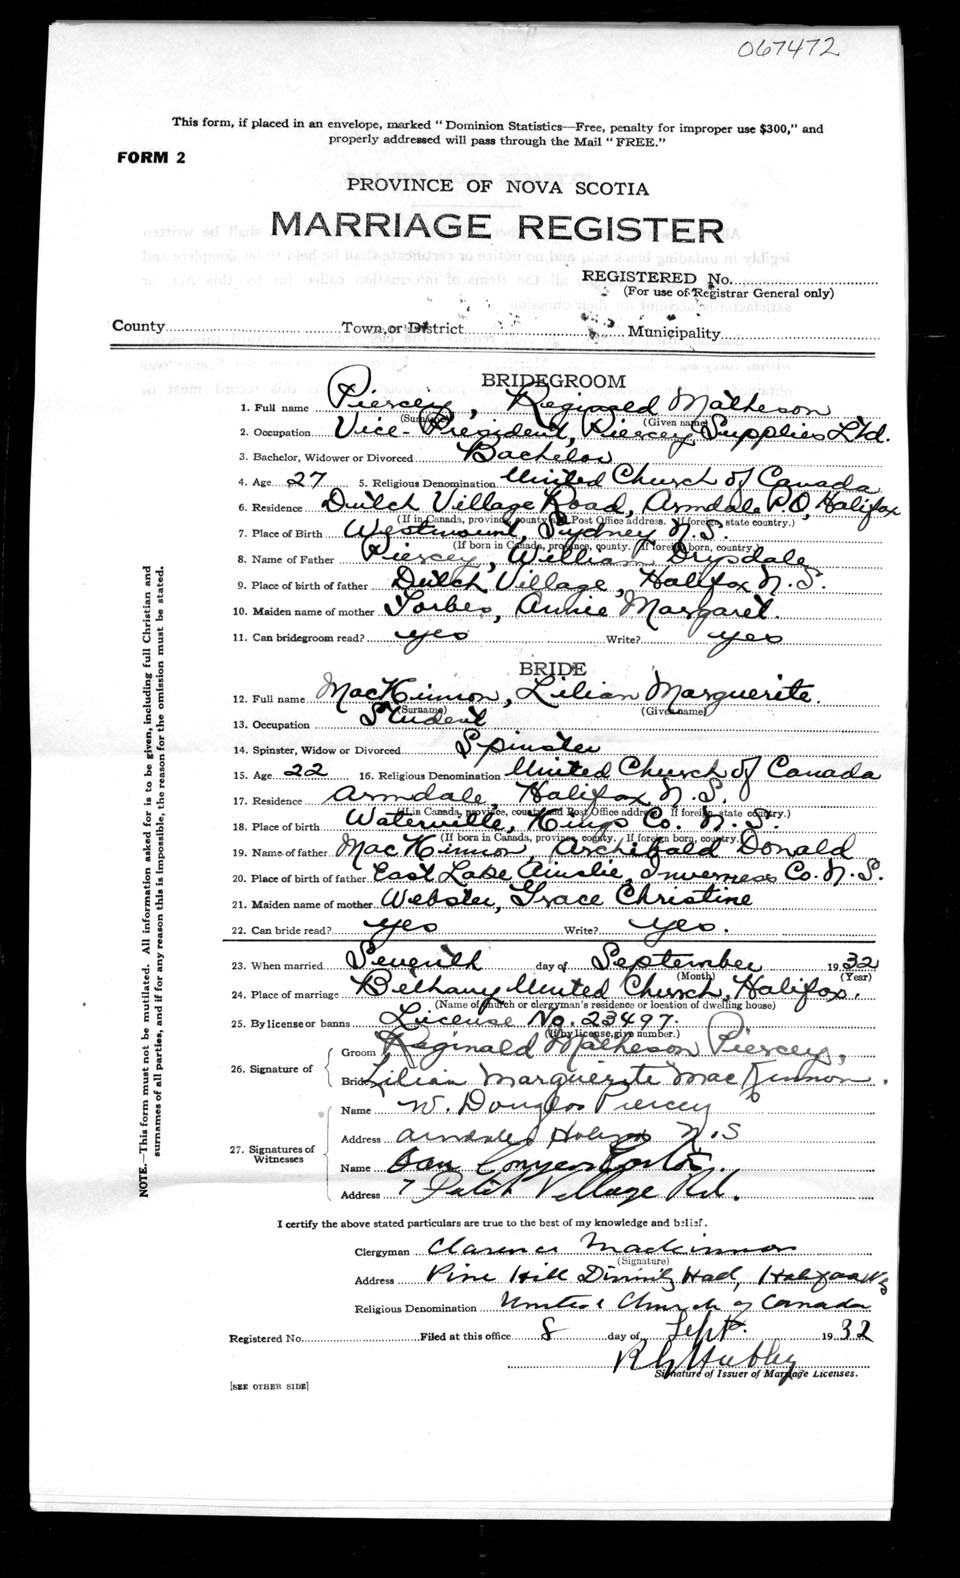 067472
This form, if placed in an envelope, marked "Dominion Statistics—Free, penalty for improper use $300," and
properly addressed will pass through the Mail "FREE."
FORM 2
PROVINCE OF NOVA SCOTIA
MARRIAGE REGISTER
REGISTERED No.
(For use of Registrar General only)
County Town or District Municipality
BRIDEGROOM
1. Full name Piercey, Reginald Matheson
(Surname) (Given name)
2. Occupation Vice-President, Piercey Supplies Ltd.
3. Bachelor, Widower or Divorced Bachelor
4. Age 27 5. Religious Denomination United Church of Canada
6. Residence Dutch Village Road, Armdale P.O, Halifax
(If in Canada, province, county and Post Office address. If foreign, state country.)
7. Place of Birth Westmount, Sydney N.S.
(If born in Canada, province, county. If foreign born, country.)
8. Name of Father Piercey, William Drysdale
9. Place of birth of father Dutch Village, Halifax N.S.
10. Maiden name of mother Forbes, Annie Margaret.
11. Can bridegroom read? yes Write? yes
BRIDE
12. Full name MacKinnon, Lilian Marguerite.
(Surname) (Given name)
13. Occupation Student
14. Spinster, Widow or Divorced Spinster
15. Age 22 16. Religious Denomination United Church of Canada
17. Residence Armdale, Halifax N.S.
(If in Canada, province, county and Post Office address. If foreign, state country.)
18. Place of birth Waterville, Kings Co. N.S.
(If born in Canada, province, county. If foreign born, country.)
19. Name of father MacKinnon, Archibald Donald
20. Place of birth of father East Lake Ainslie, Inverness Co. N.S.
21. Maiden name of mother Webster, Grace Christine
22. Can bride read? yes Write? yes.
23. When married Seventh day of September 1932
(Month) (Year)
24. Place of marriage Bethany United Church, Halifax.
(Name of church or clergyman's residence or location of dwelling house)
25. By license or banns License No. 23497.
(If by license, give number.)
26. Signature of Groom Reginald Matheson Piercey,
Bride Lilian Marguerite MacKinnon.
27. Signatures of Witnesses
Name W. Douglas Piercey
Address Armdale, Halifax N.S
Name
Address 7 Dutch Village Rd.
I certify the above stated particulars are true to the best of my knowledge and belief.
Clergyman Clarence Mackinnon
(Signature)
Address Pine Hill Divinity Hall, Halifax N.S
Religious Denomination United Church of Canada
Registered No. Filed at this office 8 day of Sept. 1932
Signature of Issuer of Marriage Licenses.
[SEE OTHER SIDE]
NOTE.—This form must not be mutilated. All information asked for is to be given, including full Christian and
surnames of all parties, and if for any reason this is impossible, the reason for the omission must be stated.